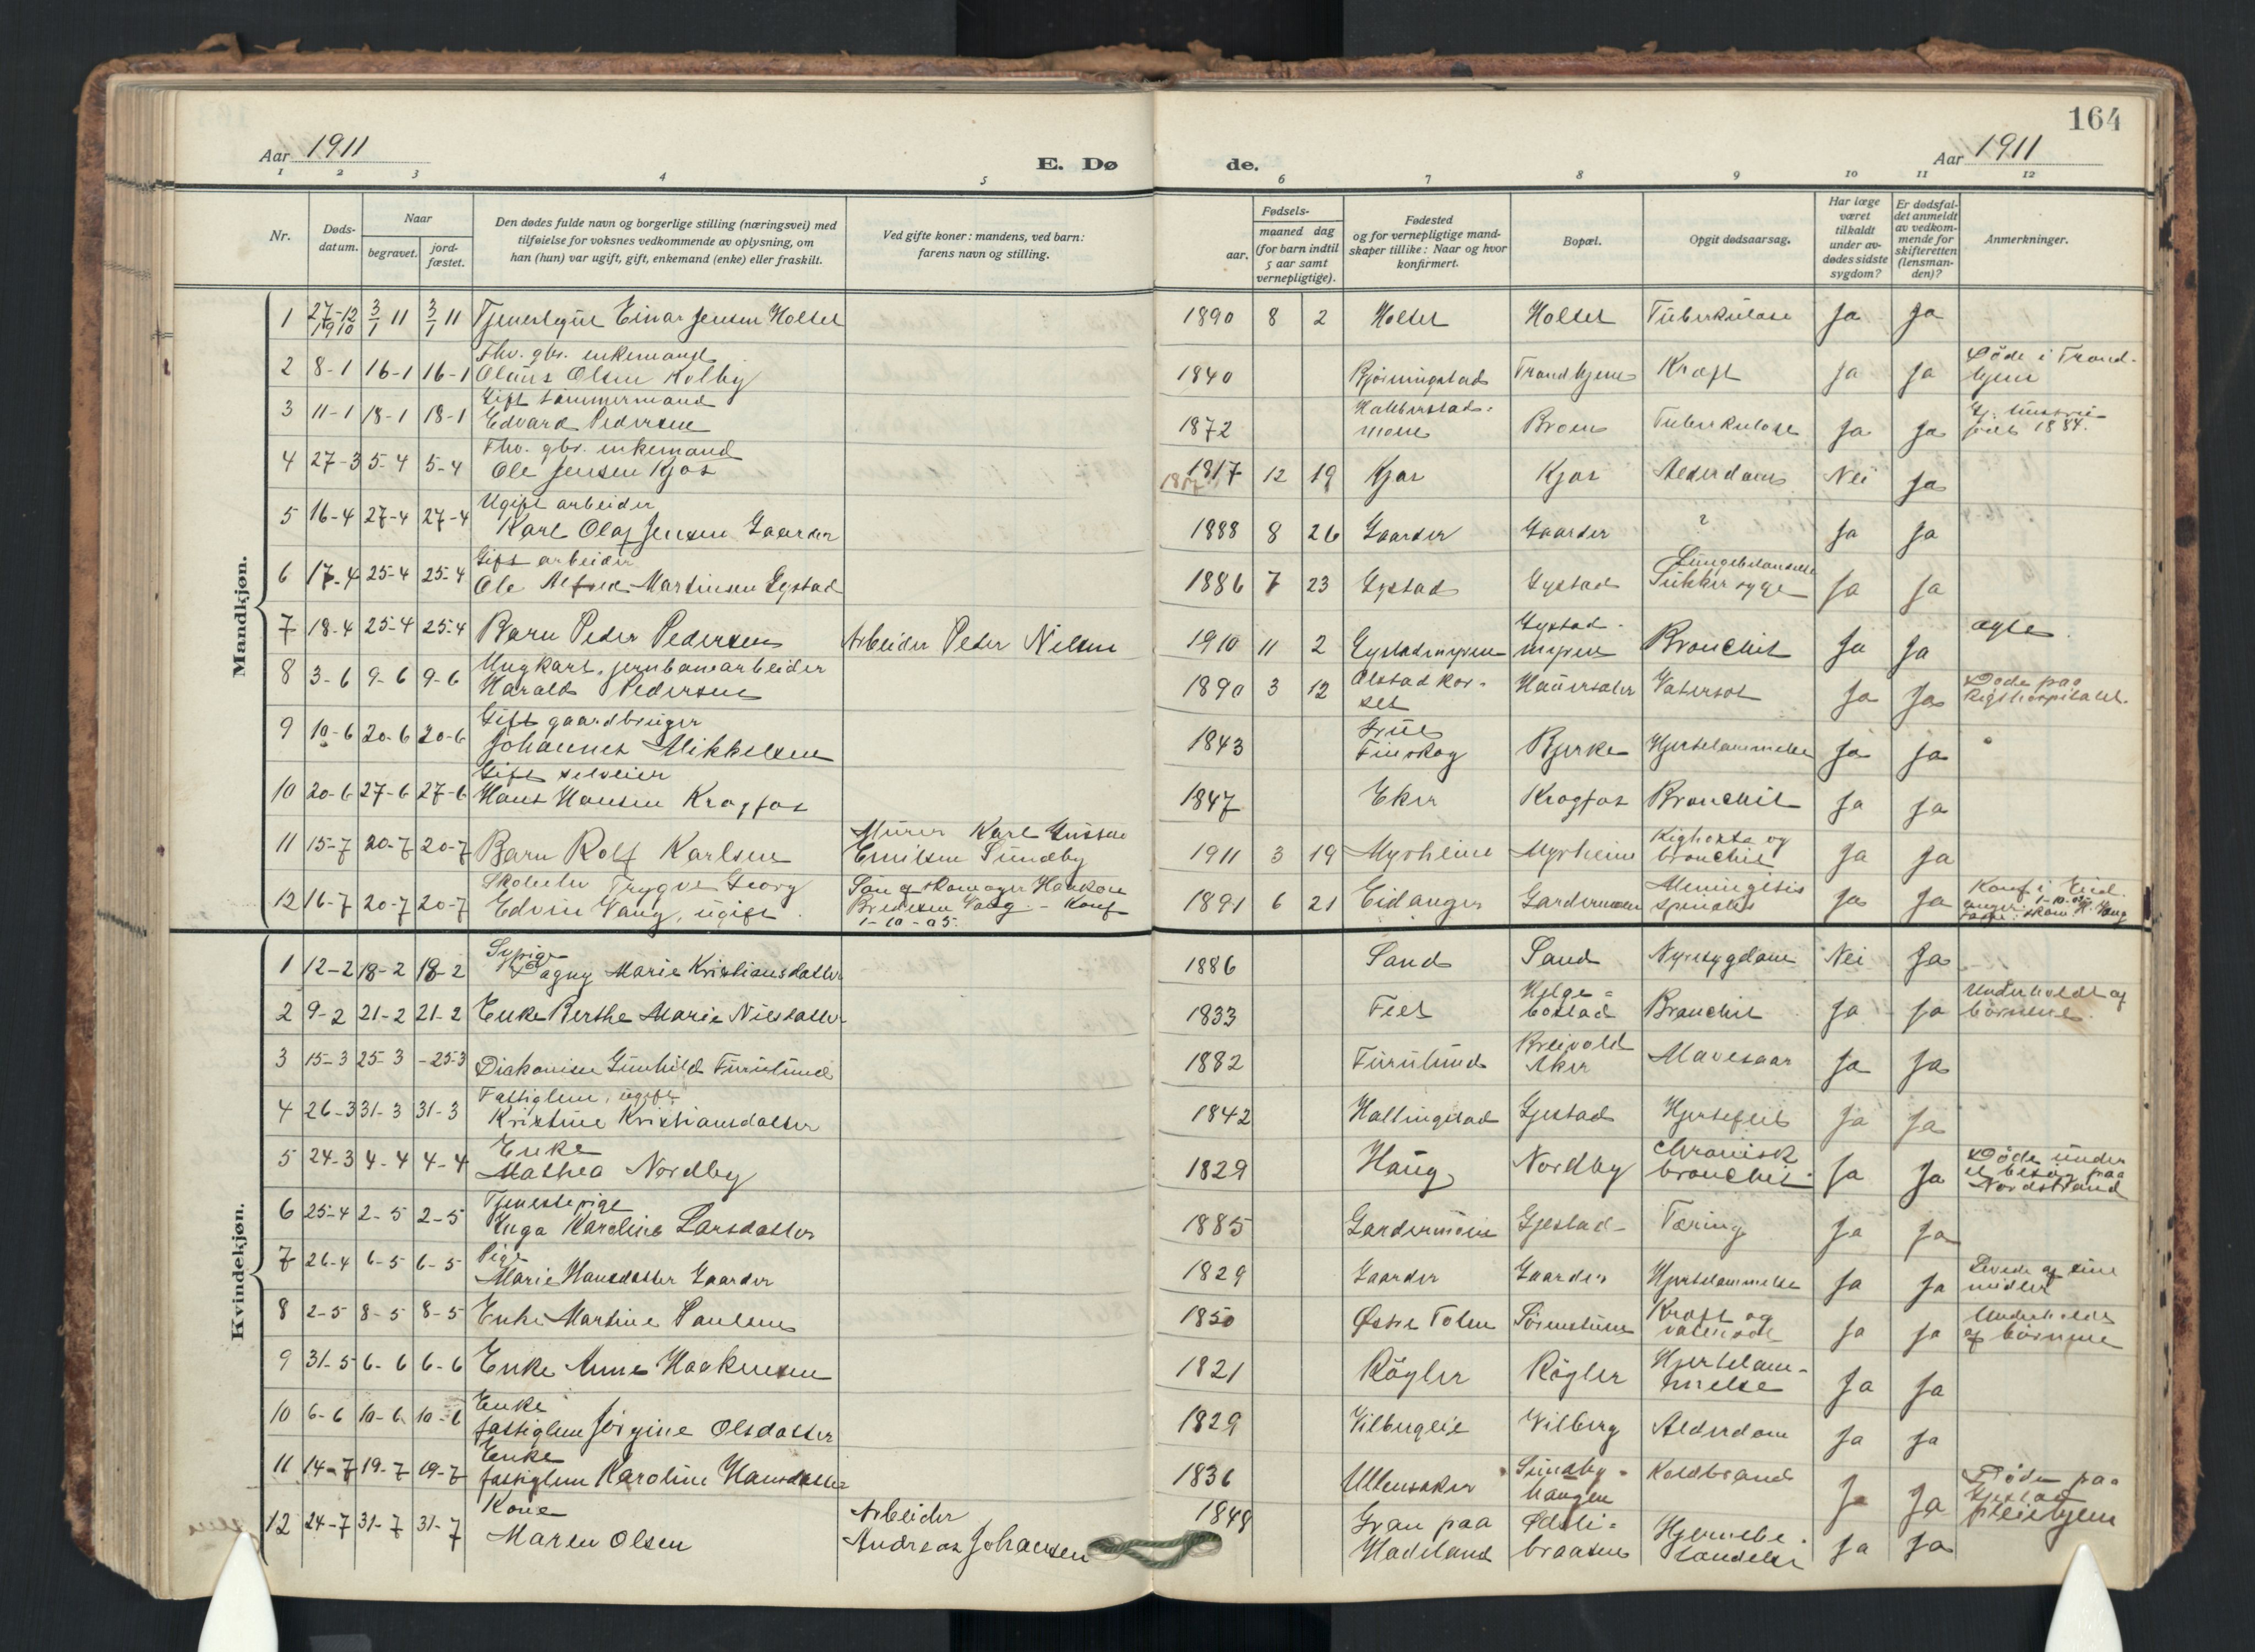 164
Aar 1911
E. Dø
de.
Aar 1911
1 2 3 4 5 6 7 8 9 10 11 12
Nr.
Døds-datum.
Naar
begravet.
jord-fæstet.
Den dødes fulde navn og borgerlige stilling (næringsvei) med
tilføielse for voksnes vedkommende av oplysning, om
han (hun) var ugift, gift, enkemand (enke) eller fraskilt.
Ved gifte koner: mandens, ved barn:
farens navn og stilling.
Fødsels-
aar.
maaned dag
(for barn indtil
5 aar samt
vernepligtige).
Fødested
og for vernepligtige mand-
skaper tillike: Naar og hvor
konfirmert.
Bopæl.
Opgit dødsaarsag.
Har læge
været
tilkaldt
under av-
dødes sidste
sygdom?
Er dødsfal-
det anmeldt
av vedkom-
mende for
skifteretten
(lensman-
den)?
Anmerkninger.
Mandkjøn.
1 27-12 1910 3/1 11 3/1 11 Tjenestegut Einar Jensen Holter 1890 8 2 Holter Holter Tuberkulose Ja Ja
2 8-1 16-1 16-1 Fhv. gbr. enkemand
Olaus Olsen Kolby 1840 Trandhjem Kræft Ja Ja Døde i Trond-
hjem
3 11-1 18-1 18-1 Gift tømmermand
Edvard Pedersen 1872 moen Broen Tuberkulose Ja Ja 1884.
4 27-3 5-4 5-4 Fhv. gbr. enkemand
Ole Jensen Kjos 1817 12 19 Kjos Kjos Alderdom Nei Ja
5 16-4 27-4 27-4 Ugift arbeider
Karl Olaf Jensen Gaarder 1888 8 26 Gaarder Gaarder ? Ja Ja
6 17-4 25-4 25-4 Gift arbeider
Ole Alfred Martinsen Gystad 1886 7 23 Gystad Gystad Lungebetændelse
Sukkersyge Ja Ja
7 18-4 25-4 25-4 Barn Peder Pedersen Arbeider Peder Nilsen 1910 11 2 Gystadmyren Gystad-
myren Bronchit Ja Ja ægte
8 3-6 9-6 9-6 Ungkarl, jernbanearbeider
Harald Pedersen 1890 3 12 Olstad kor-
set Hauersæter Vatersot Ja Ja Døde paa
Rigshospitalet.
9 10-6 20-6 20-6 Gift gaardbruger
Johannes Mikkelsen 1843 Grue
Finskog Bjerke Hjertelammelse Ja Ja
10 20-6 27-6 27-6 Gift selveier
Hans Hansen Krogfos 1847 Eker Krogfos Bronchit Ja Ja
11 15-7 20-7 20-7 Barn Rolf Karlsen Murer Karl Gustav
Emilsen Sundby 1911 3 19 Myrheim Myrheim Kighoste og
bronchit Ja Ja
12 16-7 20-7 20-7 Trygve Georg
Edvin Vang, ugift Søn af skomager Haakon
Vang. - Konf
1-10-05. 1891 6 21 Eidanger Gardermoen Meningitis
spinalis Ja Ja Konf i Eid-
anger 1-10-05
skom. H. Vang
Kvindekjøn.
1 12-2 18-2 18-2 Sypige
Dagny Marie Kristiansdatter 1886 Sand Sand Nyresygdom Nei Ja
2 9-2 21-2 21-2 Enke Berthe Marie Nilsdatter 1833 Feet Helge-
bostad Bronchit Ja Ja Underholdt af
børnene.
3 15-3 25-3 -25-3 Diakonisse Gunhild Furulund 1882 Furulund
Aker Mavesaar Ja Ja
4 26-3 31-3 31-3 Fattiglem, ugift
Kristine Kristiansdatter 1842 Hallingstad Gjestad Hjertefeil Ja Ja
5 24-3 4-4 4-4 Enke
Mathea Nordby 1829 Haug Nordby chronisk
bronchit. Ja Ja Døde under
et besøg paa
Nordstrand
6 25-4 2-5 2-5 Tjenestepige
Inga Karoline Larsdatter 1885 Gardermoen Gjestad Tæring Ja Ja
7 26-4 6-5 6-5 Pige
Marie Hansdatter Gaarder 1829 Gaarder Gaarder Hjertelammelse Ja Ja Levede af sine
midler
8 2-5 8-5 8-5 Enke Martine Paulsen 1850 Østre Toten Kræft og
vatersot Ja Ja Underholdt
af børnene
9 31-5 6-6 6-6 Enke Anne Haakensen 1821 Røgler Røgler Hjertelam-
melse Ja Ja
10 6-6 10-6 10-6 Enke
fattiglem Jørgine Olsdatter 1829 Vilbergeie Vilberg Alderdom Ja Ja
11 14-7 19-7 19-7 Enke
fattiglem Karoline Hansdatter 1836 Ullensaker Sundby-
haugen Koldbrand Ja Ja Døde paa
Gjestad
pleiehjem
12 24-7 31-7 31-7 Kone
Maren Olsen Arbeider
Andreas Johansen 1849 Gran paa
Hadeland Ødeli-
braaten Hjernebe-
tændelse Ja Ja